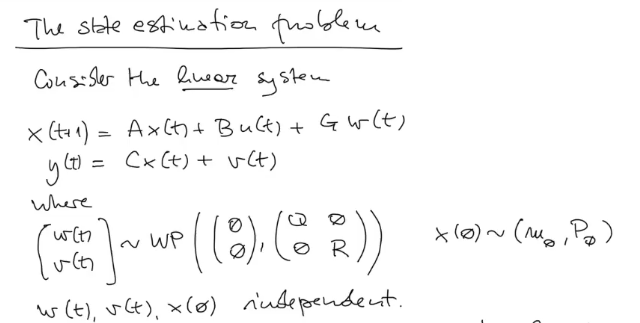 The state estimation problem
Consider the linear system
x(t+1) = Ax(t) + Bu(t) + Gw(t)
y(t) = Cx(t) + v(t)
where
(w(t) v(t)] ~ WP((0 0), (Q 0 0 R)) x(0) ~ (m₀, P₀)
w(t), v(t), x(0) independent.